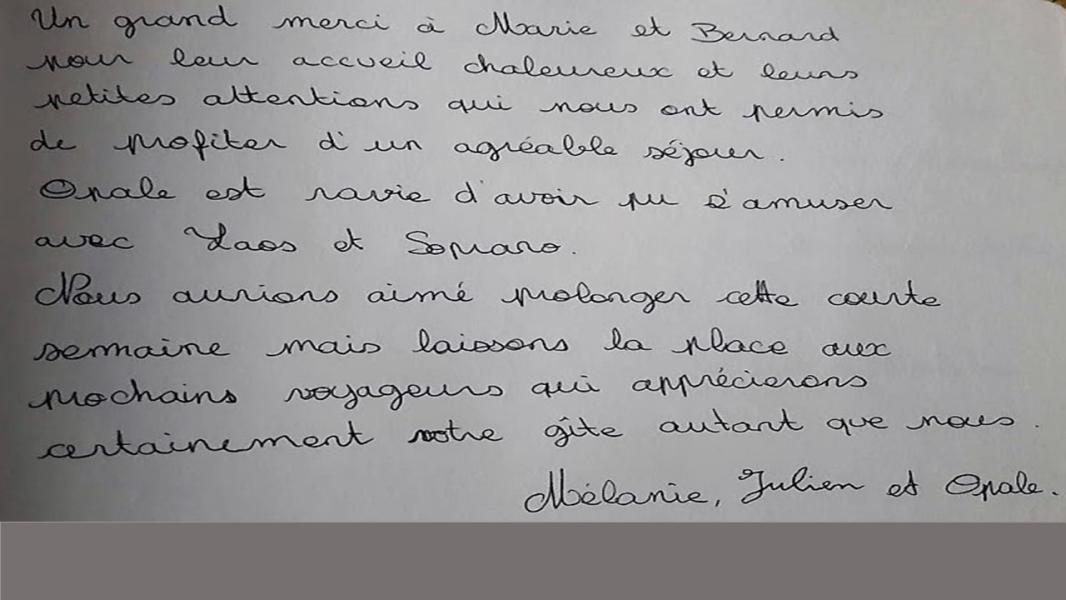 Un grand merci à Marie et Bernard
pour leur accueil chaleureux et leurs
petites attentions qui nous ont permis
de profiter d'un agréable séjour.
Opale est ravie d'avoir pu s'amuser
avec Laos et Soprano.
Nous aurions aimé prolonger cette courte
semaine mais laissons la place aux
prochains voyageurs qui apprécierons
certainement votre gîte autant que nous.
Mélanie, Julien et Opale.